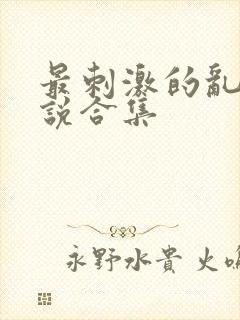 最刺激的亂
說合集
永野水貴 火鳴